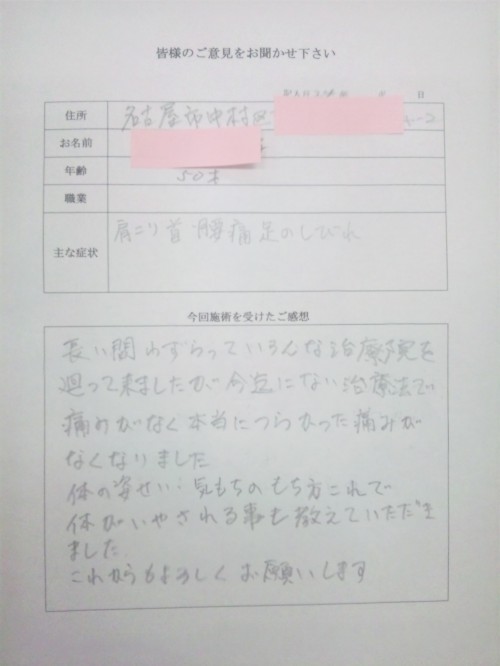 皆様のご意見をお聞かせ下さい
日
住所 名古屋市中村区
お名前
年齢 50才
職業
主な症状 肩こり 首 腰痛 足のしびれ
今回施術を受けたご感想
長い間わずらっていろんな治療院を
廻って来ましたが今迄にない治療法で
痛みがなく本当につらかった痛みが
なくなりました
体の姿せい・気もちのもち方これで
体がいやされる事も教えていただき
ました
これからもよろしくお願いします